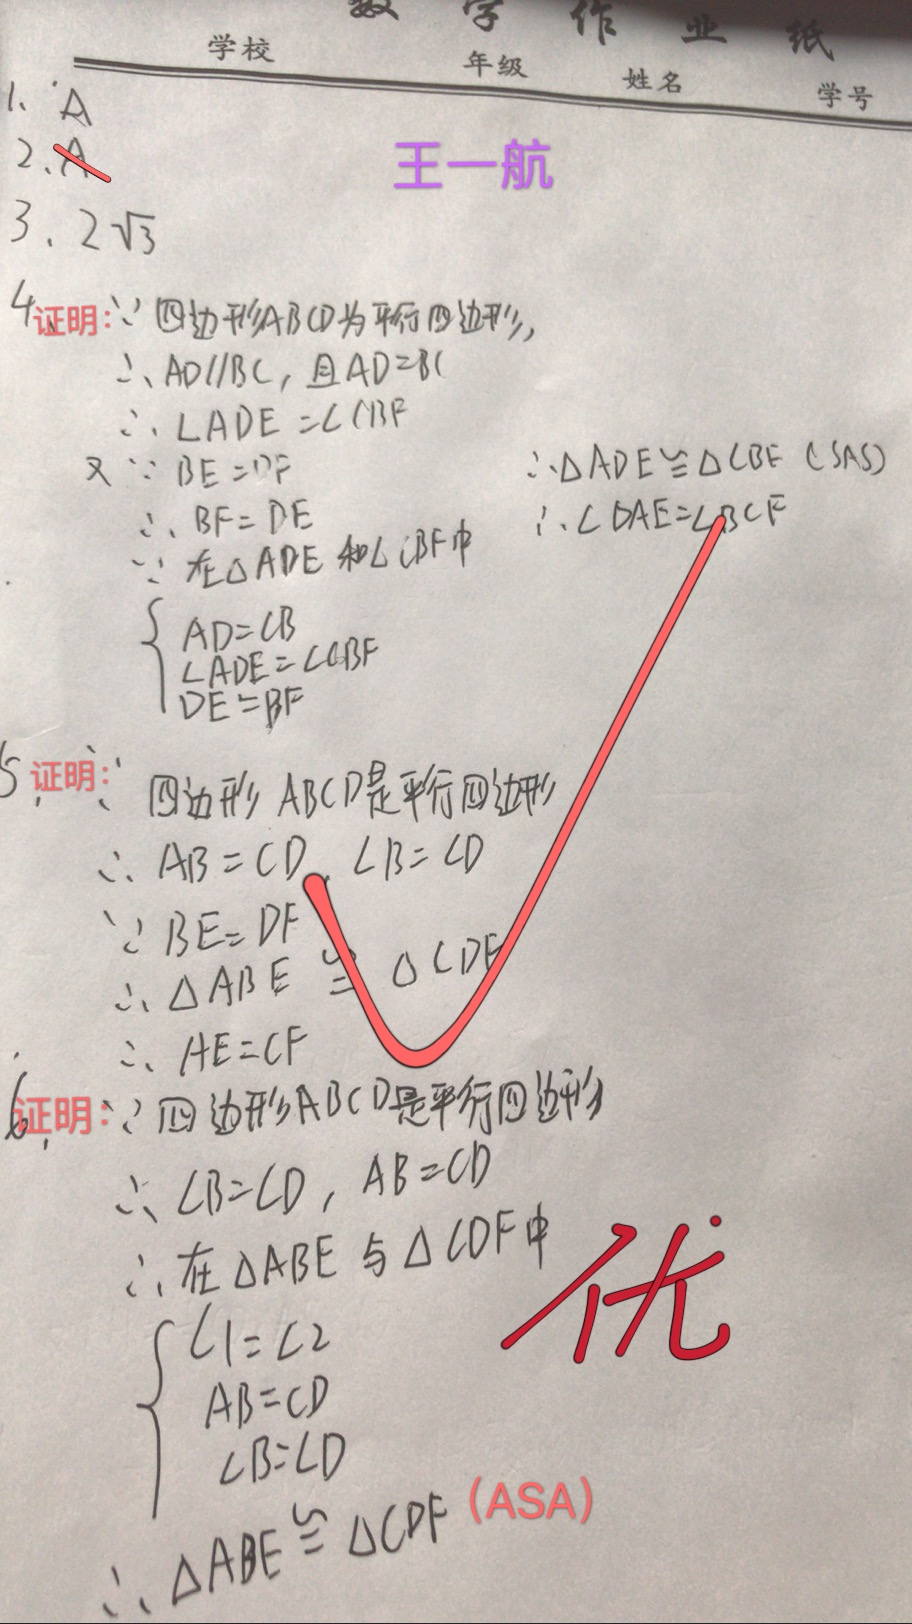 数学作业纸
学校 年级 姓名 学号
1、A
王一航
2、A
3、2√3
4 证明：∵四边形ABCD为平行四边形，
∴AD//BC，且AD=BC
∴∠ADE=∠CBF
又∵BE=DF
∴BF=DE
∵在△ADE和△CBF中
{AD=CB
∠ADE=∠CBF
DE=BF
∴△ADE≌△CBF（SAS）
∴∠DAE=∠BCF
5 证明：∵四边形ABCD是平行四边形
∴AB=CD，∠B=∠D
∵BE=DF
∴△ABE≌△CDF
∴AE=CF
6、证明：∵四边形ABCD是平行四边形
∴∠B=∠D，AB=CD
∴在△ABE与△CDF中
{∠1=∠2
AB=CD
∠B=∠D
优
∴△ABE≌△CDF（ASA）